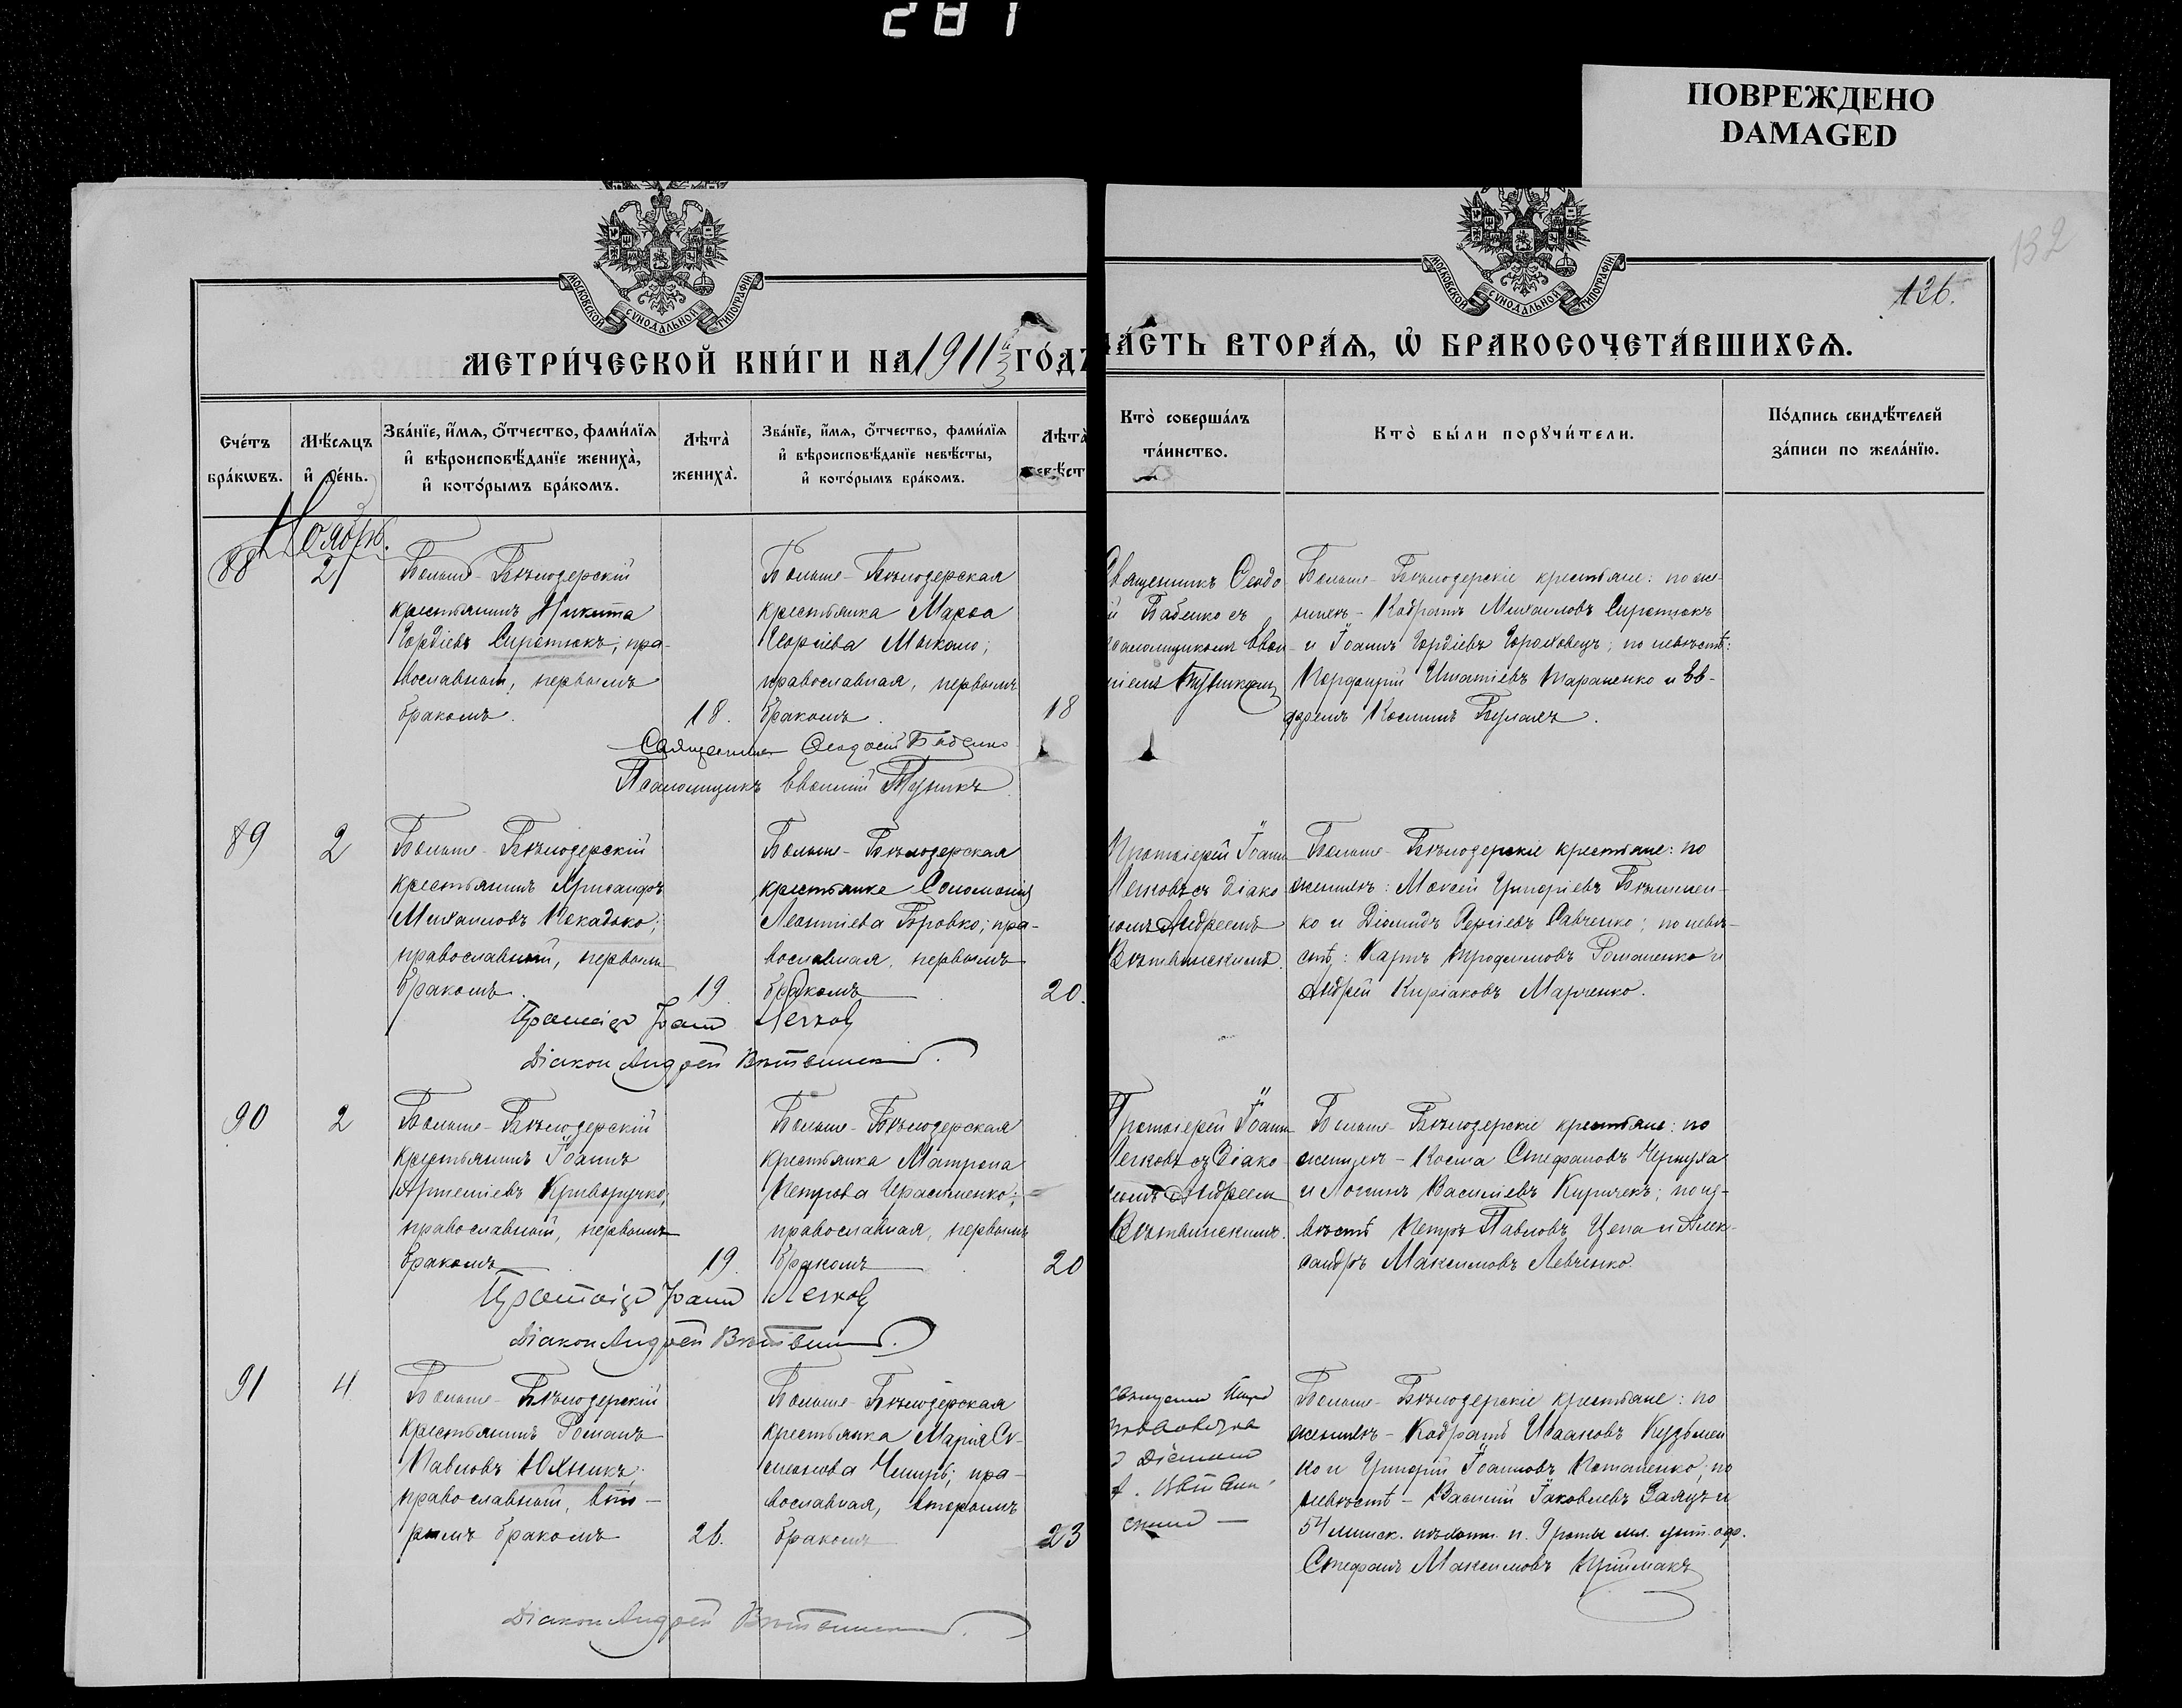 281
ПОВРЕЖДЕНО
DAMAGED
132
126.
МОСКОВСКОЙ СУНОДАЛЬНОЙ ТИПОГРАФІИ
МОСКОВСКОЙ СУНОДАЛЬНОЙ ТИПОГРАФІИ
МЕТРИ́ЧЕСКОЙ КНИ́ГИ НА 1911й ГО́ДЪ
ЧА́СТЬ ВТОРА́Ѧ, Ѡ҆ БРАКОСОЧЕТА́ВШИХСѦ.
Сче́тъ
бра́кѡвъ.
Мѣ́сѧцъ
и҆ де́нь.
Зва́нїе, и҆́мѧ, ѻ҆́тчество, фами́лїѧ
и҆ вѣроисповѣ́данїе жениха̀,
и҆ кото́рымъ бра́комъ.
Лѣта̀
жениха̀.
Зва́нїе, и҆́мѧ, ѻ҆́тчество, фами́лїѧ
и҆ вѣроисповѣ́данїе невѣ́сты,
и҆ кото́рымъ бра́комъ.
Лѣта̀
невѣ́ст
Кто̀ соверша́лъ
та́инство.
Кто̀ бы́ли порꙋчи́тели.
По́дпись свидѣ́телей
за́писи по жела́нїю.
Ноябрь.
88
21
Больше-Бѣлозерскій
крестьянинъ Никита
Гордіевъ Сиротюкъ; пра-
вославный, первымъ
бракомъ.
18.
Больше-Бѣлозерская
крестьянка Марѳа
Георгіева Мыкало;
православная, первымъ
бракомъ.
18
Священникъ Ѳеодо
й Бабенко съ
псаломщикомъ Евѳи-
міемъ Туникомъ
Больше-Бѣлозерскіе крестьяне: по же-
нихѣ - Кодратъ Михаиловъ Сиротюкъ
и Іоаннъ Гордіевъ Гороховецъ; по невѣстѣ:
Порфирій Игнатіевъ Тараненко и Ев-
фремъ Косминъ
Священникъ Ѳеодосій Бабенко
Псаломщикъ Евѳимій Туникъ
89
2
Больше-Бѣлозерскій
крестьянинъ Хрисанфъ
Михаиловъ Покадько;
православный, первымъ
бракомъ.
19
Больше-Бѣлозерская
крестьянка Соломонія
Леонтіева Бровко; пра-
вославная, первымъ
бракомъ
20.
Протоіерей Іоаннъ
Легковъ съ діако
номъ Андреемъ
Вѣтвинскимъ.
Больше-Бѣлозерскіе крестьяне: по
женихѣ: Моѵсей Григоріевъ
ко и Діомидъ Сергіевъ Савченко; по невѣ-
стѣ: Карпъ Романенко и
Андрей Киріаковъ Марченко.
Протоіер Іоаннъ Легков
Діаконъ Андрей Вѣтвинскій.
90
2
Больше-Бѣлозерскій
крестьянинъ Іоаннъ
Артеміевъ Криворучко;
православный, первымъ
бракомъ
19.
Больше-Бѣлозерская
крестьянка Матрона
Петрова Герасименко;
православная, первымъ
бракомъ
20
Протоіерей Іоаннъ
Легковъ съ діако
номъ Андреемъ
Вѣтвинскимъ.
Больше-Бѣлозерскіе крестьяне: по
женихѣ - Косма Стефановъ Чернуха
и Логинъ Василіевъ Киричекъ; по не-
вѣстѣ Петръ Павловъ Цепа и Алек-
сандръ Максимовъ Левченко.
Протоіер Іоаннъ Легков
Діаконъ Андрей Вѣтвинскій.
91
4
Больше-Бѣлозерскій
крестьянинъ Романъ
Павловъ Юхникъ;
православный, вто-
рымъ бракомъ
26.
Больше-Бѣлозерская
крестьянка Марія Си-
меонова православная, вторымъ
бракомъ
23
Священник
съ Діакономъ
А. Вѣтвин-
скимъ —
Больше-Бѣлозерскіе крестьяне: по
женихѣ - Кодратъ Исааковъ Кузьмен
ко и Григорій Іоанновъ Потапенко; по
невѣстѣ - Василій Іаковлевъ Заяцъ и
54 минск. пѣхотн. п. 9 роты мл. унт. оф.
Стефанъ Максимовъ Приймакъ
Діаконъ Андрей Вѣтвинскій.